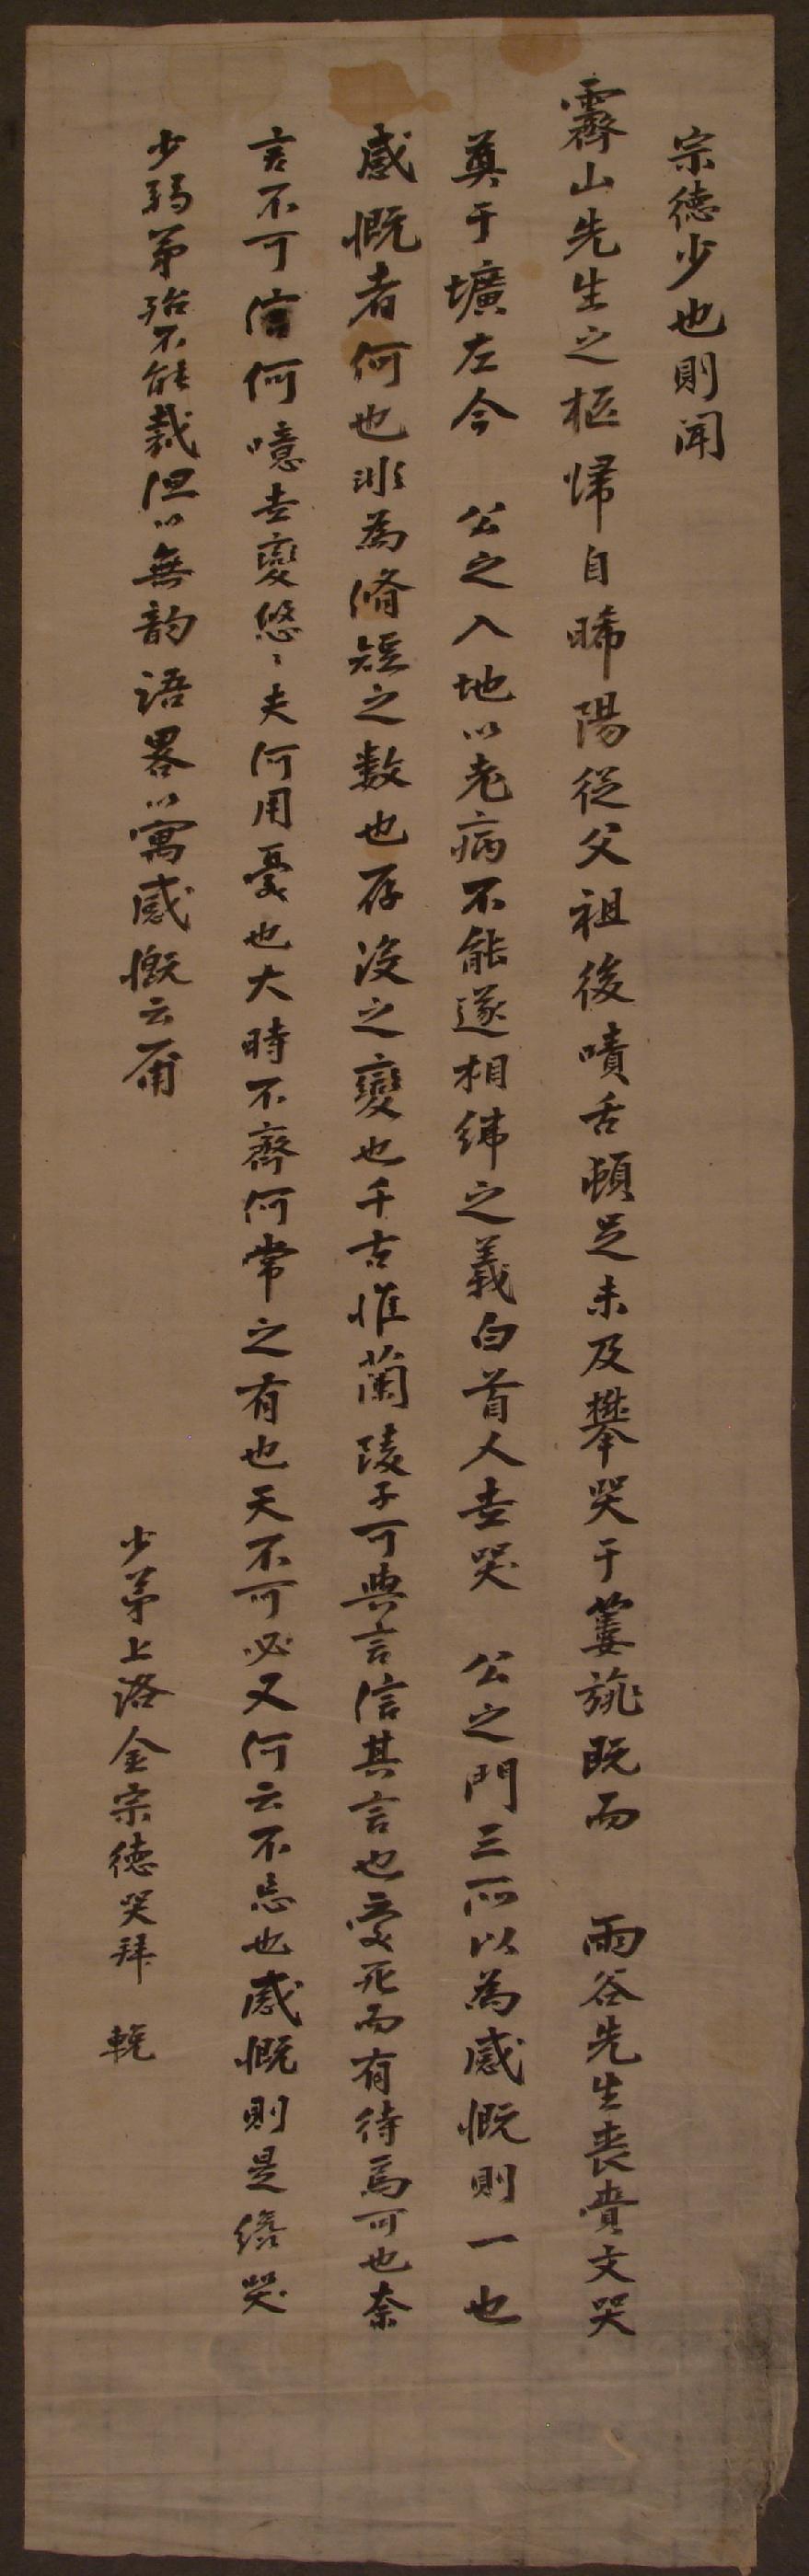 宗德少也則聞
霽山先生之柩歸自晞陽從父祖後嘖舌頓足未及攀哭于蔞旐旣而 雨谷先生喪賫文哭
奠于壙左今 公之入地以老病不能遂相紼之義白首人去哭 公之門三所以為感慨則一也
感慨者何也非為脩短之數也存沒之變也千古惟蘭陵子可與言信其言也愛死而有待焉可也奈
言不可信何噫去變悠〻夫何用憂也大時不齊何常之有也天不可必又何云不忘也感慨則是緣哭
少弱弟殆不能裁但以無韵語畧以寓感慨云爾
少弟上洛金宗德哭拜 輓